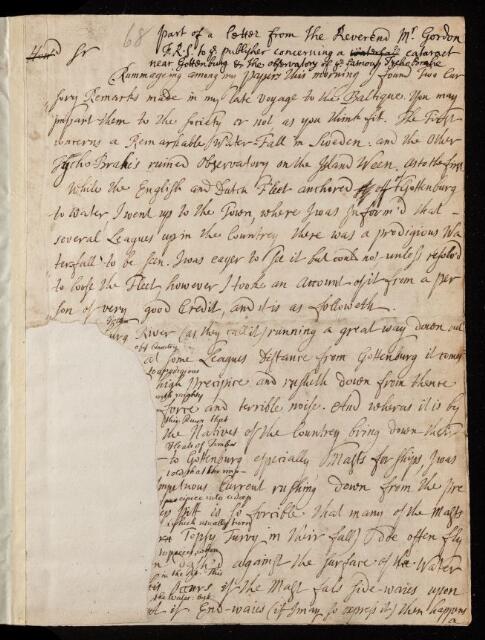 68
part of a letter from the Reverend Mr. Gordon
F.R.S. to ye publisher concerning a waterfall cataract
near Gottenburg & the observatory of ye famous Tycho Brahe
Sr
Rummageing among my papers this morning I found Two Cur
sory Remarks made in my late voyage to the Baltique. You may
impart them to the society or not as you think fit. The First
concerns a Remarkable Water-Fall in Sweden. and the Other
Tycho Brahe's ruined Observatory on the Island Ween. As to the first
While the English and Dutch Fleet anchored off of Gottenburg
to water I went up to the Town, where I was Inform'd that
several Leagues up in the Countrey there was a prodigious Wa
terfall to be seen. I was eager to see it but could not unless resolvd
to loose the Fleet, however I tooke an Account of it from a per
son of very good Credit, and it is as followeth
burg River (as they call it) running a great way down out
of ye Country
at some Leagues Distance from Gottenburg it comes
to a prodigious
high Precipice and rusheth down from thence
with mighty
Force and terrible noise. And whereas it is by
this River that
the Natives of the Countrey bring down their
Floats of Timber
to Gottenburg especially Masts for ships I was
told that the im-
petuous Current rushing down from the Pre
precipice into a deep
Pitt is so forcible that many of the Masts
(which usually turn
Topsy Turvy in their fall) Do often fly
in pieces when
dash'd against the surface of the Water
in the Pit. This
Occurs if the Mast fals side-waies upon
the Water: but
if End-waies (if I may so express it) then happens
a